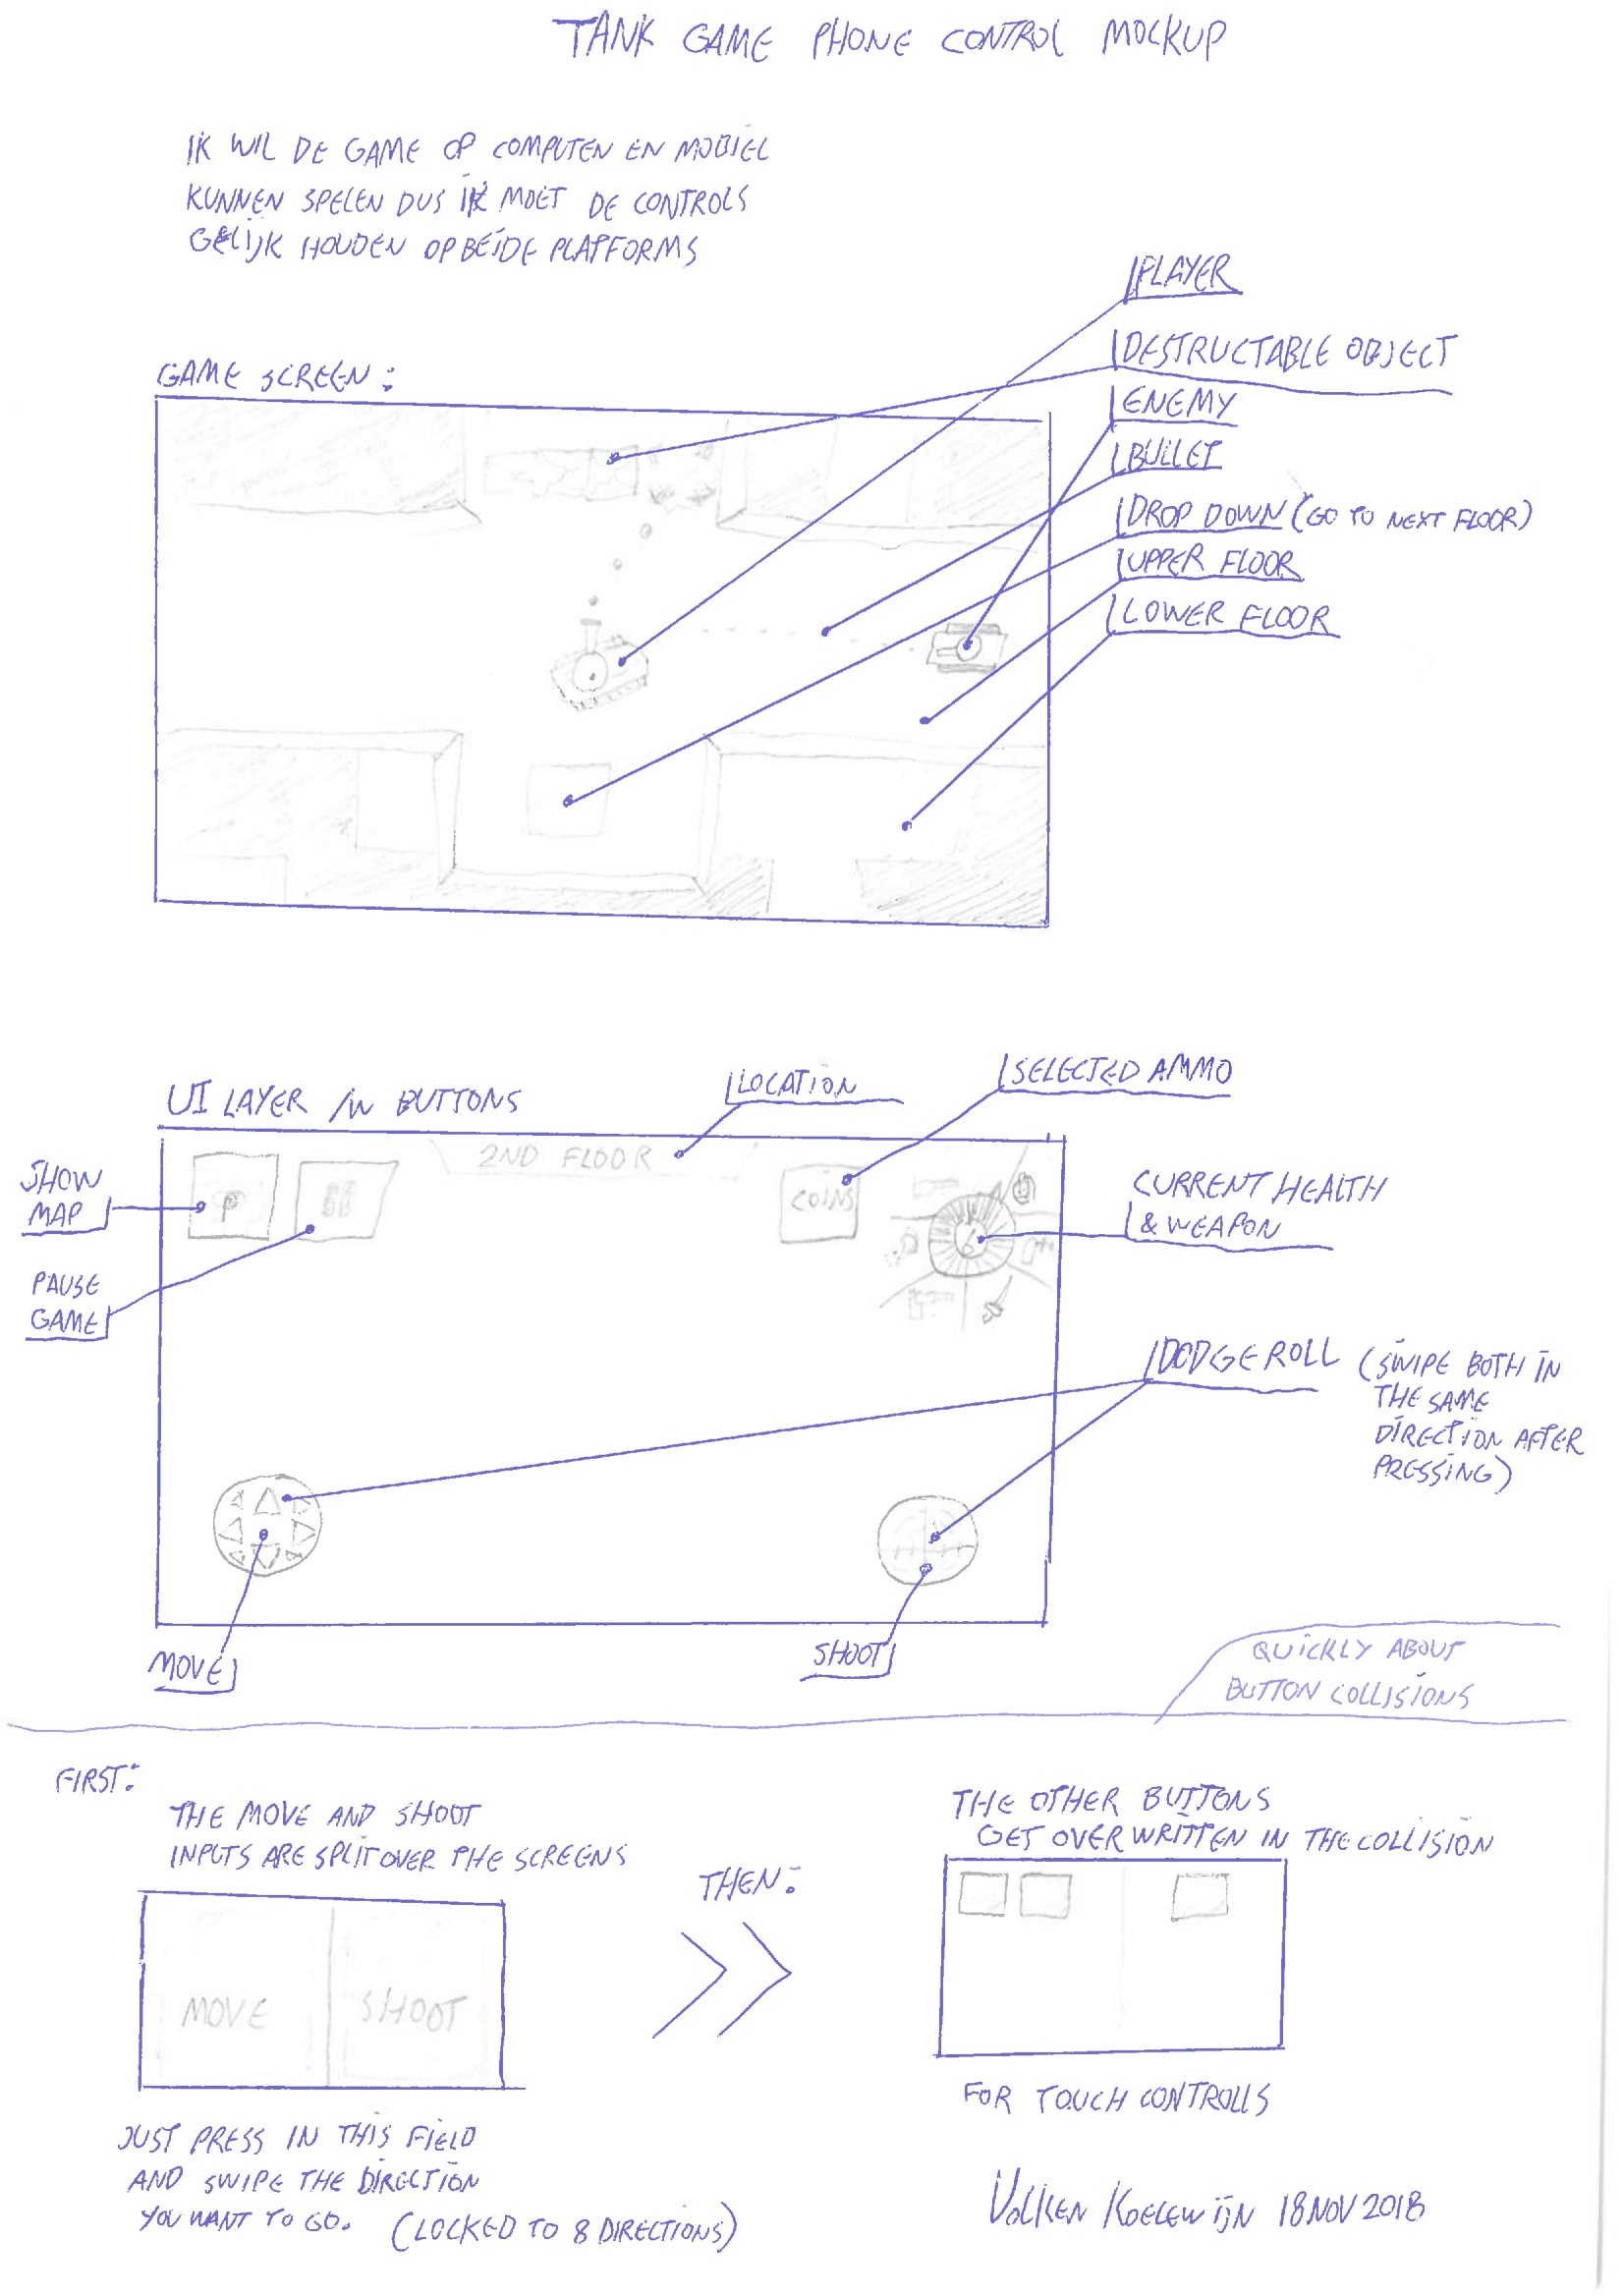 TANK GAME PHONE CONTROL MOCKUP
IK WIL DE GAME OP COMPUTEN EN MOBIEL
KUNNEN SPELEN DUS IK MOET DE CONTROLS
GELIJK HOUDEN OP BEIDE PLATFORMS
GAME SCREEN:
PLAYER
DESTRUCTABLE OBJECT
ENEMY
BULLET
DROP DOWN (GO TO NEXT FLOOR)
UPPER FLOOR
LOWER FLOOR
UI LAYER /W BUTTONS
LOCATION
SELECTED AMMO
2ND FLOOR
SHOW
MAP
P
COINS
CURRENT HEALTH
& WEAPON
PAUSE
GAME
DODGE ROLL (SWIPE BOTH IN
THE SAME
DIRECTION AFTER
PRESSING)
MOVE
SHOOT
QUICKLY ABOUT
BUTTON COLLISIONS
FIRST:
THE MOVE AND SHOOT
INPUTS ARE SPLIT OVER THE SCREENS
MOVE
SHOOT
JUST PRESS IN THIS FIELD
AND SWIPE THE DIRECTION
YOU WANT TO GO. (LOCKED TO 8 DIRECTIONS)
THEN:
THE OTHER BUTTONS
GET OVERWRITTEN IN THE COLLISION
FOR TOUCH CONTROLLS
VOLKEN KOELEWIJN 18 NOV 2018